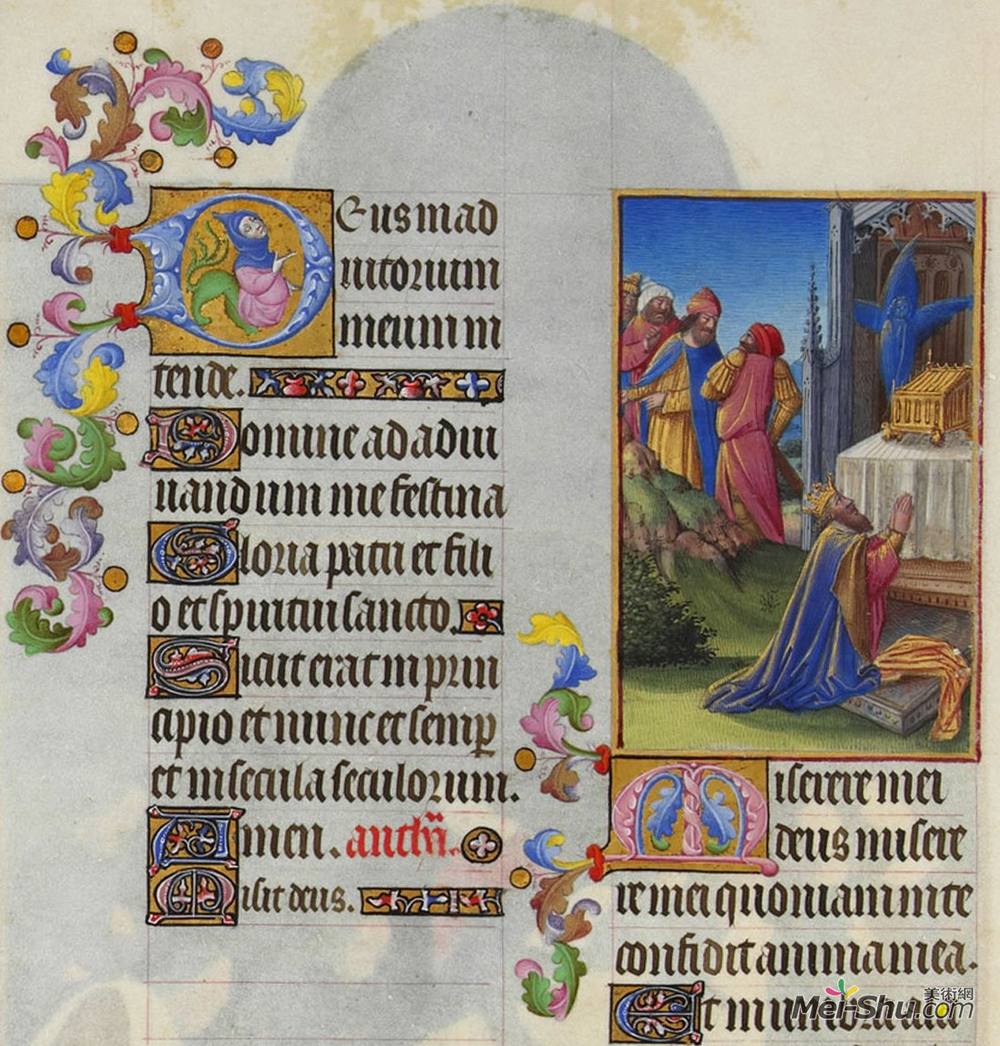 Deus in ad
iutorium
meum in
tende.
Domine ad adiu
uandum me festina
Gloria patri et fili
o et spiritui sancto.
Sicut erat in prin
cipio et nunc et semp
et in secula seculorum.
Amen. anth.
Misit deus.
Miserere mei
deus misere
re mei quoniam in te
confidit anima mea.
Et in umbra ala
美術網
Mei-Shu.com